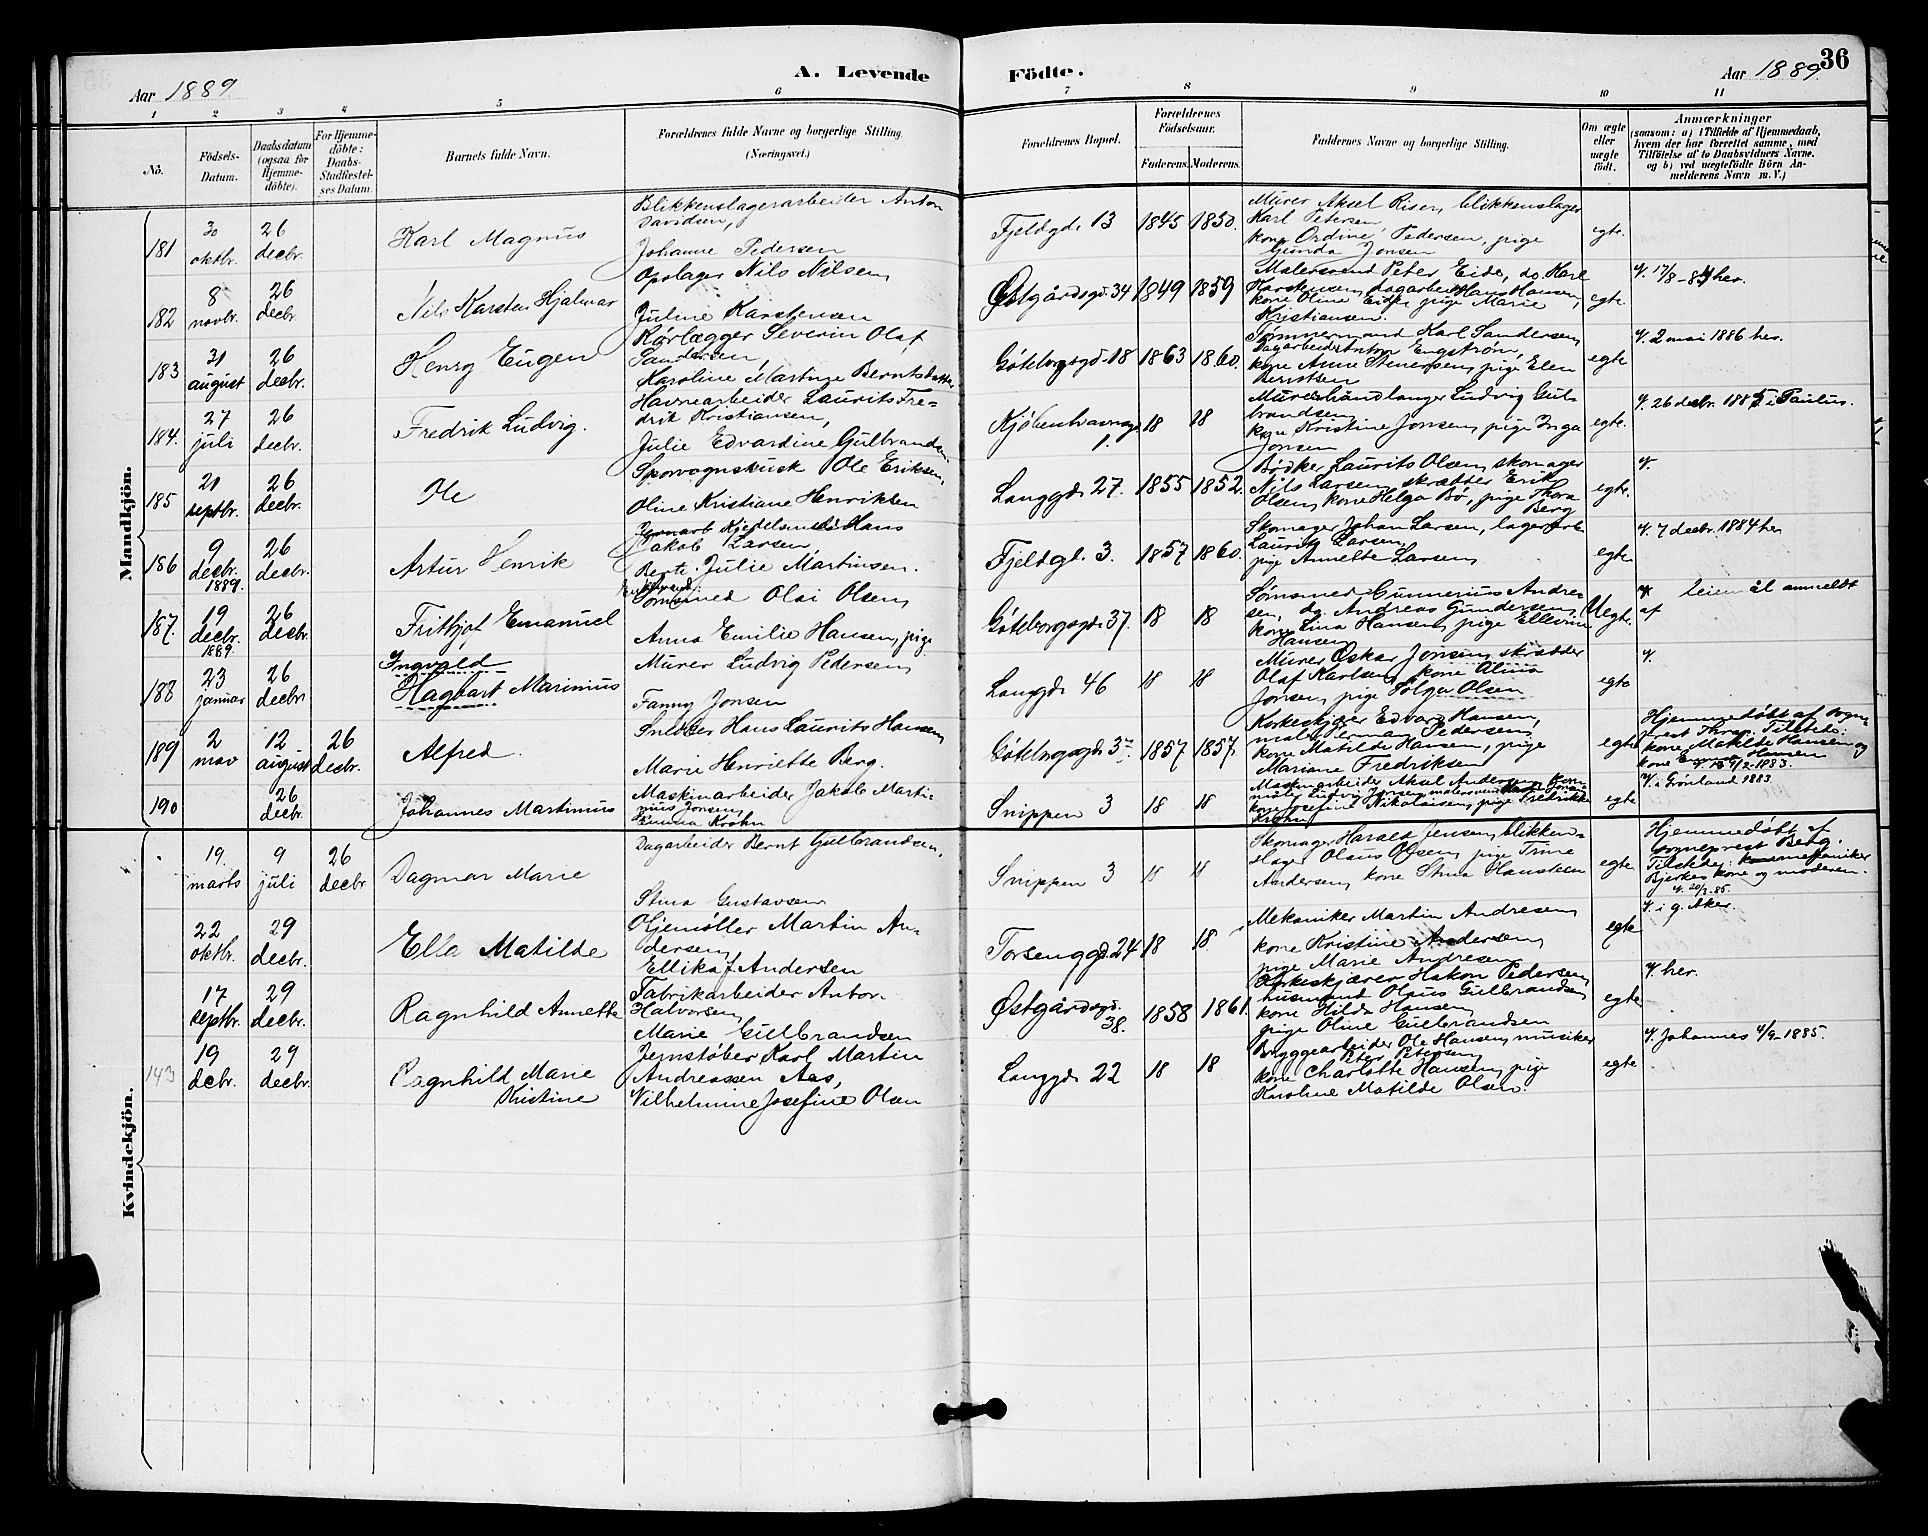 Aar 1889.
A. Levende Födte.
Aar 1889.
36
1 2 3 4 5 6 7 8 9 10 11
No.
Födsels-Datum.
Daabsdatum (ogsaa for Hjemme-döbte).
For Hjemme-döbte: Daabs-Stadfæstel-ses Datum.
Barnets fulde Navn.
Forældrenes fulde Navne og borgerlige Stilling. (Næringsvei.)
Forældrenes Bopæl.
Forældrenes Födselsaar.
Faderens. Moderens.
Faddernes Navne og borgerlige Stilling.
Om ægte eller uægte födt.
Anmærkninger
(saasom: a) i Tilfælde af Hjemmedaab,
hvem der har forrettet samme, med
Tilföielse af to Daabsvidners Navne,
og b) ved uægtefödte Börn An-
melderens Navn m. V.)
Mandkjön.
181 30 oktbr. 26 decbr. Karl Magnus
Blikkenslagerarbeider Anton
Davidsen,
Johanne Pedersen
Fjeldgd. 13 1845 1850.
Murer Aksel Riser, blikkenslager
Karl Petersen
kone Ordine Pedersen, pige
Gunda Jonsen
egte.
182 8 novbr. 26 decbr. Nils Karsten Hjalmar
Opslager Nils Nilsen,
Juline Karstensen
Østgårdsgd. 34 1849 1859
Malersvend Peter Eide, do. Karl
Karstensen, dagarbeider Hans Hansen,
kone Oline Eide, pige Marie
Kristiansen.
egte.
V. 17/8-84 her.
183 31 august 26 decbr. Henry Eugen
Rørlægger Severin Olaf
Sandersen,
Karoline Martine Berntsdatter
Gøteborgsgd. 18 1863 1860.
Tømmermand Karl Sandersen,
Dagarbeider Anton Engstrøm,
kone Anne Steversen, pige Elen
Berntsen
egte
V. 2 mai 1886 her.
184. 27 juli 26 decbr. Fredrik Ludvig.
Havnearbeider Laurits Fre-
drik Kristiansen,
Julie Edvardine Gulbrandsen
Kjøbenhavnsgd. 1. 18 18
Murerhåndlanger Ludvig Gul-
brandsen,
kone Kristine Jonsen, pige Inga
Jonsen
egte.
V. 26 decbr. 1885 i Paulus.
185 21 septbr. 26 decbr. Ole
Sporvognskusk Ole Eriksen,
Oline Kristiane Henriksen
Langgd. 27. 1855 1852.
Bødker Laurits Olsen, skomager
Nils Larsen, skrædder Erik
Olsen, kone Helga Bø, pige Thora
Berg
egte.
V.
186 9 decbr. 1889. 26 decbr. Artur Henrik
Hans
Jakob Larsen
Berte Julie Martinsen.
Fjeldgd. 3. 1857 1860.
Skomager Johan Larsen, lagerarb.
Laurits Larsen,
pige Annette Larsen
egte
V. 7 decbr. 1884 her
187. 19 decbr. 1889. 26 decbr. Fritkjof Emanuel
Sømsmed Olai Olsen,
Anna Emilie Hansen, pige
Gøteborgsgd. 37. 18 18
Sømsmed Gunnerius Andre-
sen, do. Andreas Gundersen,
kone Lina Hansen, pige Ellevine
Hansen
Uegte.
leiemål anmeldt
af
188 23 januar 26 decbr Ingvald
Hagbart Marinius
Murer Ludvig Pedersen,
Fanny Jonsen
Langgd. 46 18 18
Murer Oskar Jonsen, skrædder
Olaf Karlsen, kone Olina
Jonsen, pige Solga Olsen
egte
V.
189 2 mav 12 august 26 decbr. Alfred.
Snedker Hans Laurits Hansen,
Marie Henriette Berg.
Gøteborgsgd. 37 1857 1857.
Korkeskjærer Edvard Hansen,
maler Herman Pedersen,
kone Matilde Hansen, pige
Mariane Fredriksen
egte
Hjemmedøbt af sogne-
prest Thrap. Tilstede:
kone Matilde Hansen og
kone Hansen
1883.
190 26 decbr. Johannes Martinius
Maskinarbeider Jakob Marti-
nius Jonsen,
Emma Krohn
Snippen 3 18 18
Maskinarbeider Aksel Andersen,
kone Josefine Nikolaisen, pige Fredrikke
Krohn
egte
V. i Grønland 1883.
Kvindekjön.
19. marts 9 juli 26 decbr Dagmar Marie
Dagarbeider Bernt Gulbrandsen,
Stina Gustavsen
Snippen 3 18 18
Skomager Harald Jensen, blikken-
slager Olaus Olsen, pige Trine
Andersen, kone Stina Hansteen
egte
Hjemmedøbt af
sogneprest Berg.
Tilstede: mekaniker
Bjerkes kone og moderen.
V. 20/3. 85.
22 oktbr. 29 decbr. Ella Matilde
Oljemøller Martin An-
dersen,
Ellika J Andersen
Torsenggd. 24 18 18
Mekaniker Martin Andresen,
kone Kristine Andersen,
pige Marie Andresen
egte
V. i g. Aker.
17 septbr. 29 decbr. Ragnhild Annette
Fabrikarbeider Anton
Halvorsen,
Marie Gulbrandsen
Østgårdsgd. 38. 1858 1861.
Korkeskjærer Hakon Pedersen,
husmand Olaus Gulbrandsen,
kone Hilda Hansen,
pige Oline Gulbrandsen
egte
V. her.
143 19 dcbr. 29 decbr. Ragnhild Marie
Kristine
Jernstøber Karl Martin
Andreassen Aas,
Vilhelmine Josefine Olsen
Langgd. 22 18 18
Bryggearbeider Ole Hansen, musiker
Peter Petersen,
kone Charlotte Hansen, pige
Karoline Matilde Olsen.
egte
V. Johannes 4/9-1885.